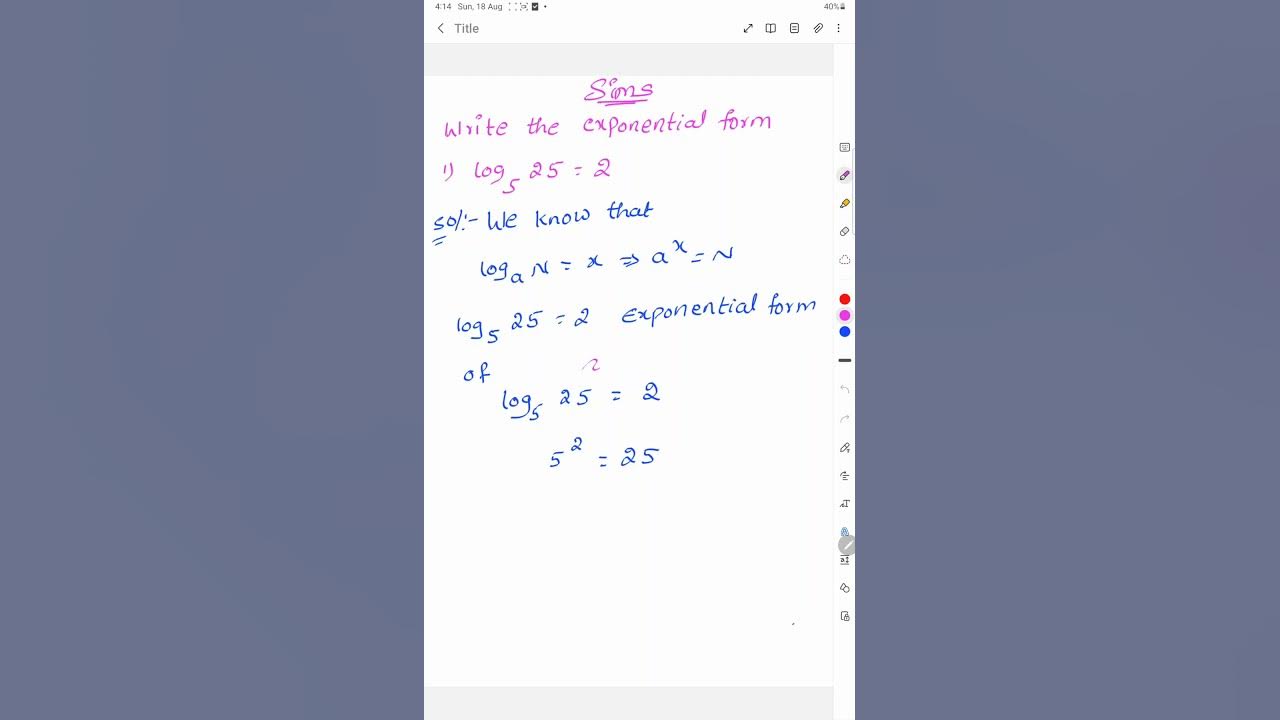 4:14 Sun, 18 Aug 40%
Title
Sims
Write the exponential form
1) log₅ 25 = 2
Sol:- We know that
logₐ N = x ⇒ aˣ = N
log₅ 25 = 2 Exponential form
of
log₅ 25 = 2
5² = 25